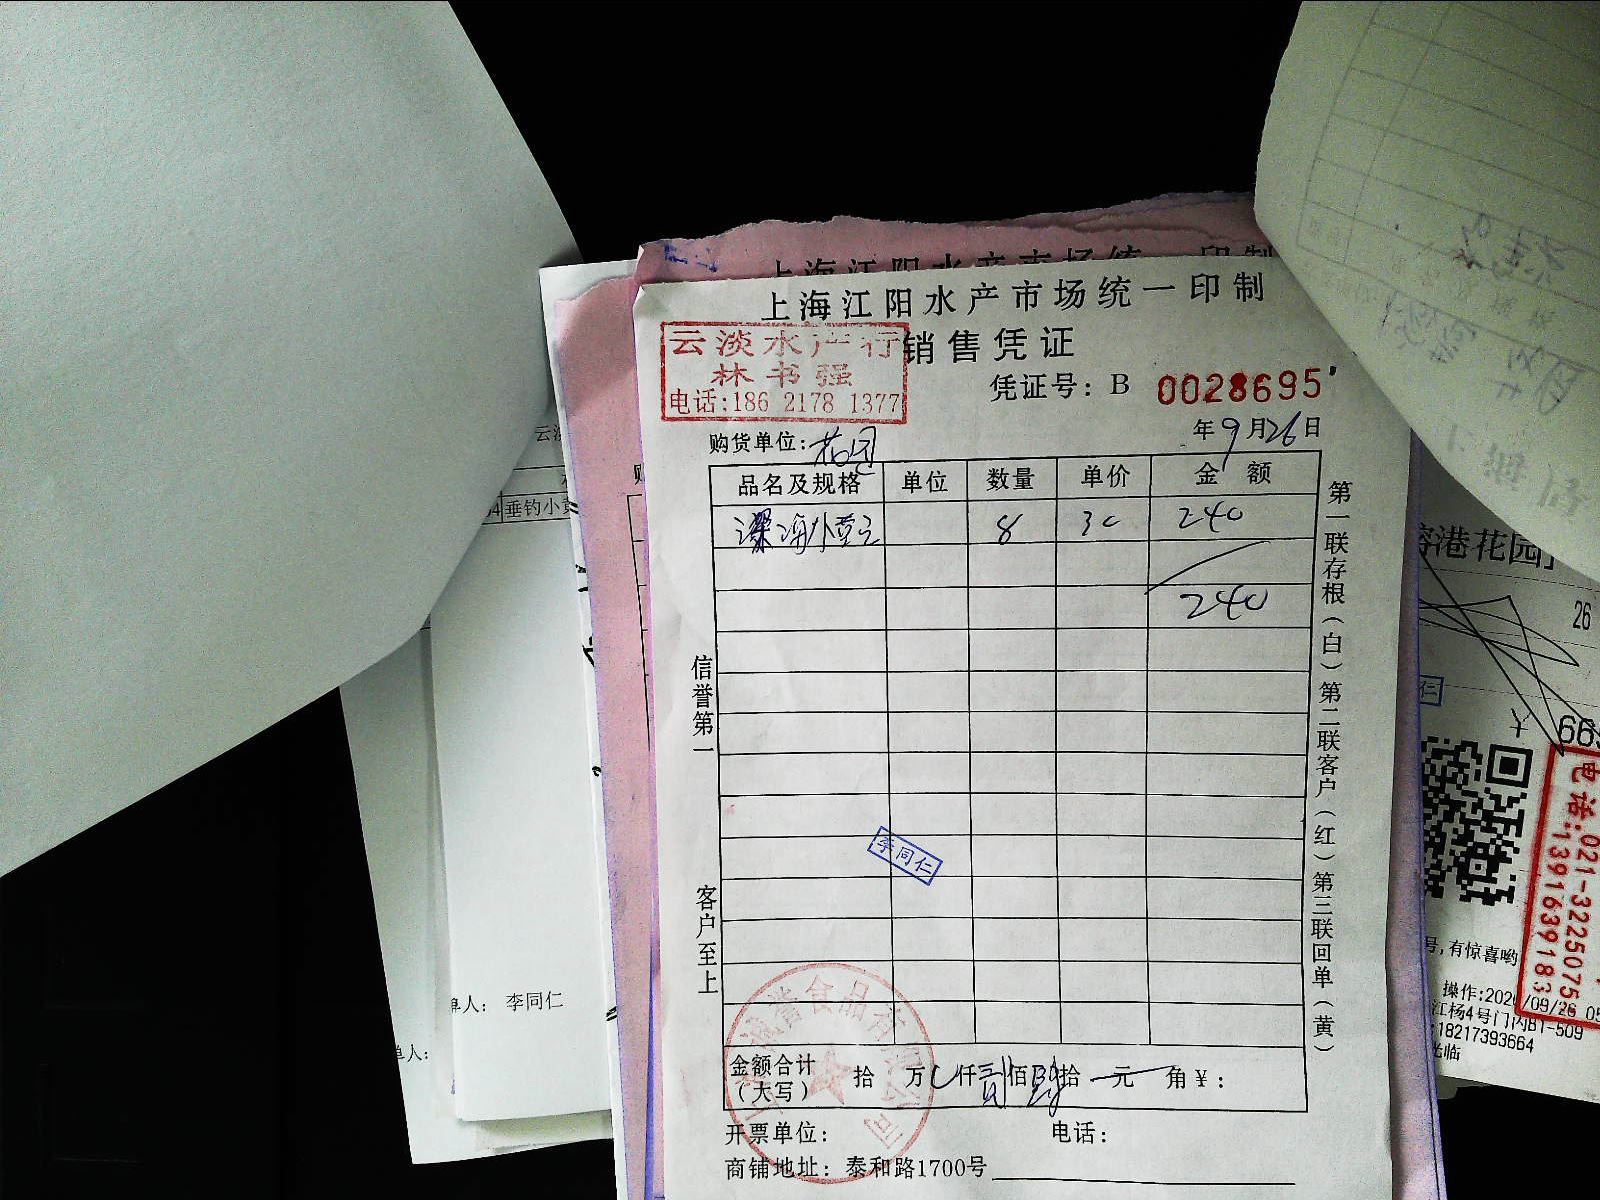 上海江阳水产市场统一印制
上海江阳水产市场统一印制
云淡水产行
销售凭证
林书强
电话:186 2178 1377
凭证号: B 0028695
年9月26日
购货单位:花园
品名及规格 单位 数量 单价 金额
深海小黄鱼 8 30 240
240
第一联存根(白) 第二联客户(红) 第三联回单(黄)
信誉第一
客户至上
李同仁
诚誉食品有限公司
金额合计
(大写)
拾 万 仟贰佰肆拾 元 角 ¥:
开票单位:
电话:
商铺地址: 泰和路1700号
垂钓小黄
单人: 李同仁
单人:
港花园
26
仁
665
电话:021-32250755
13916391983
号,有惊喜哟
操作:2020/09/26 05
江杨4号门内B1-509
18217393664
光临